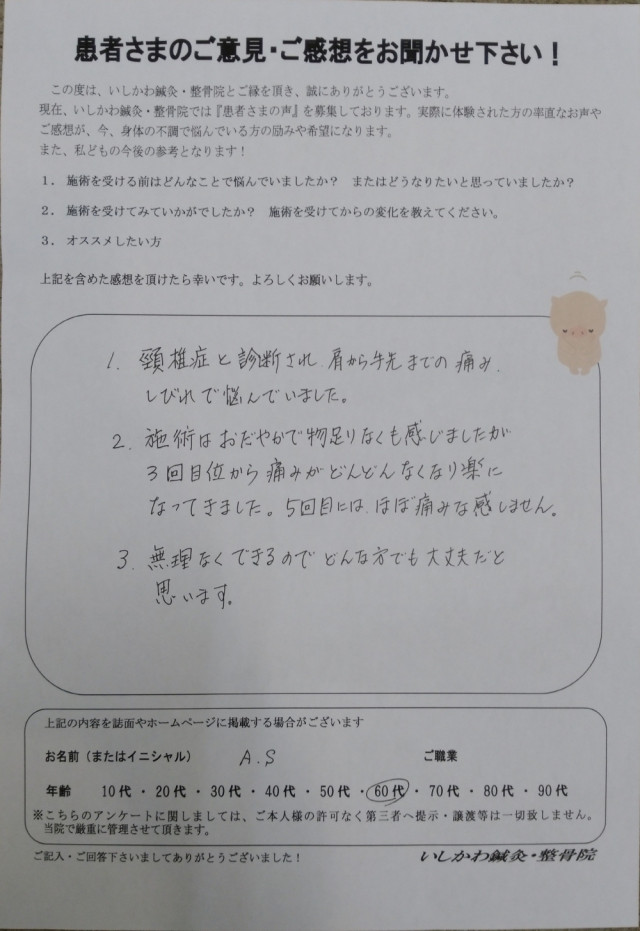 患者さまのご意見・ご感想をお聞かせ下さい！
この度は、いしかわ鍼灸・整骨院とご縁を頂き、誠にありがとうございます。
現在、いしかわ鍼灸・整骨院では『患者さまの声』を募集しております。実際に体験された方の率直なお声や
ご感想が、今、身体の不調で悩んでいる方の励みや希望になります。
また、私どもの今後の参考となります！
1．施術を受ける前はどんなことで悩んでいましたか？　またはどうなりたいと思っていましたか？
2．施術を受けてみていかがでしたか？　施術を受けてからの変化を教えてください。
3．オススメしたい方
上記を含めた感想を頂けたら幸いです。よろしくお願いします。
1. 頸椎症と診断され、肩から手先までの痛み、
しびれで悩んでいました。
2. 施術はおだやかで物足りなくも感じましたが
3回目位から痛みがどんどんなくなり楽に
なってきました。5回目には、ほぼ痛みな感しません。
3. 無理なくできるのでどんな方でも大丈夫だと
思います。
上記の内容を誌面やホームページに掲載する場合がございます
お名前（またはイニシャル）　A.S　ご職業
年齢　10代・20代・30代・40代・50代・60代・70代・80代・90代
※こちらのアンケートに関しましては、ご本人様の許可なく第三者へ提示・譲渡等は一切致しません。
当院で厳重に管理させて頂きます。
ご記入・ご回答下さいましてありがとうございました！　いしかわ鍼灸・整骨院